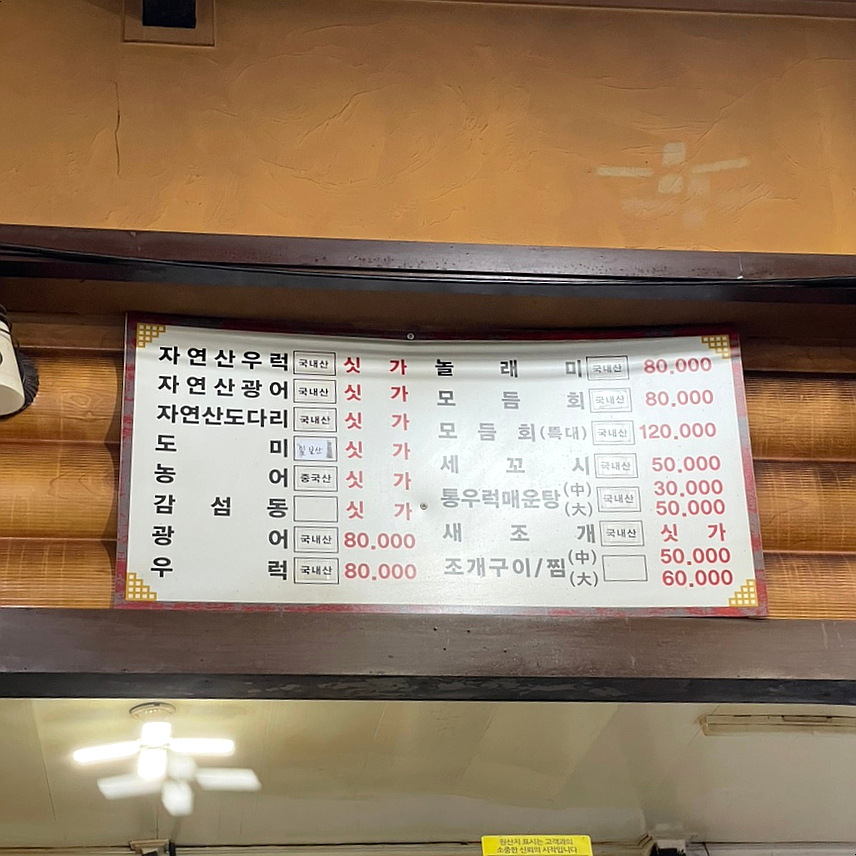 자연산우럭 국내산 싯가
자연산광어 국내산 싯가
자연산도다리 국내산 싯가
도미 일본산 싯가
농어 중국산 싯가
감섬동 싯가
광어 국내산 80.000
우럭 국내산 80.000
놀래미 국내산 80.000
모듬회 국내산 80.000
모듬회(특대) 국내산 120.000
세꼬시 국내산 50.000
통우럭매운탕(中) 국내산 30.000
(大) 50.000
새조개 국내산 싯가
조개구이/찜(中) 50.000
(大) 60.000
원산지 표시는 고객과의
소중한 신뢰의 시작입니다